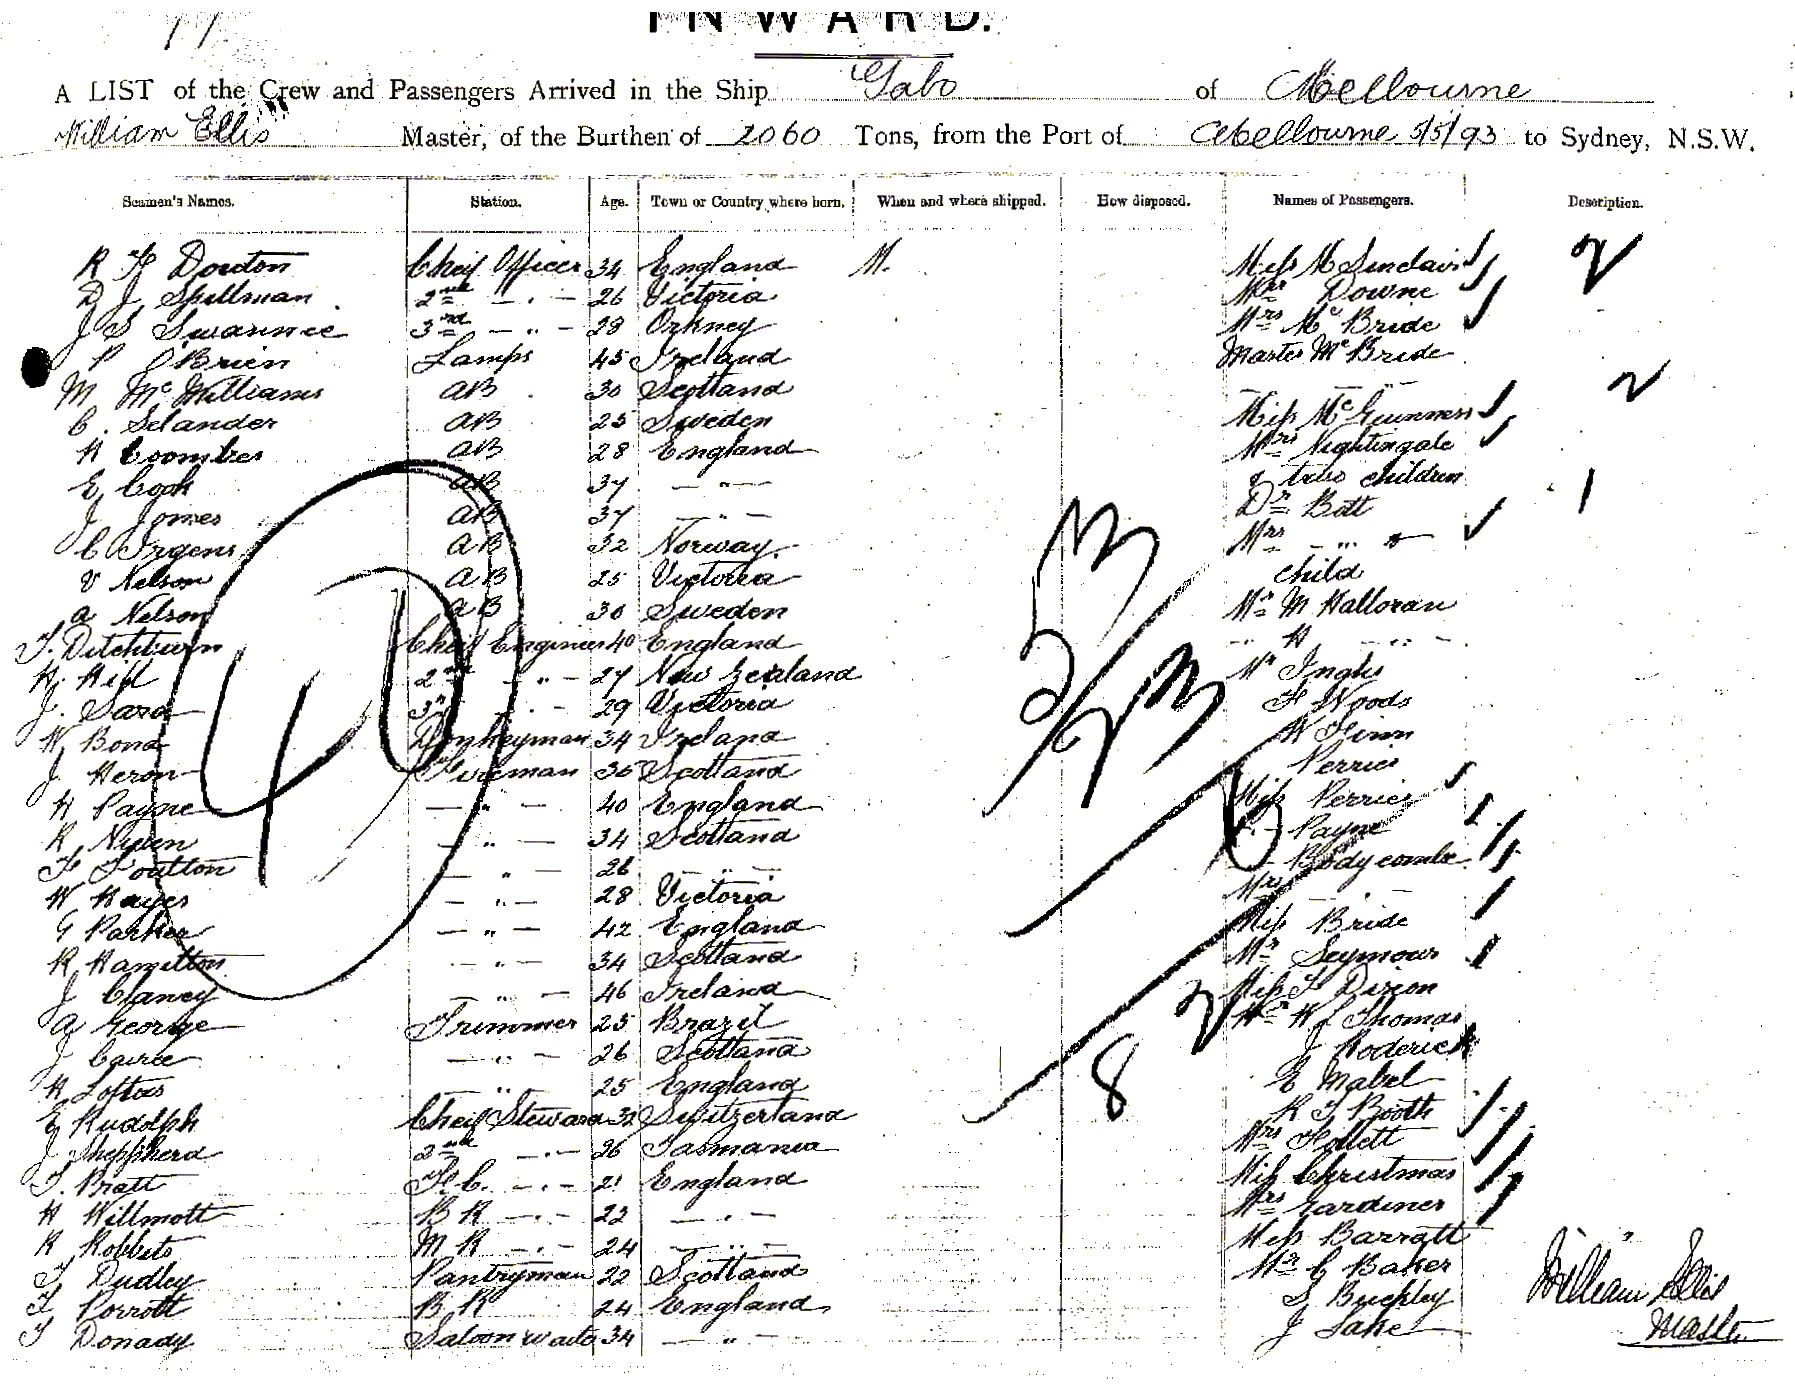 INWARD.
A LIST of the Crew and Passengers Arrived in the Ship Gabo of Melbourne
William Ellis Master, of the Burthen of 2060 Tons, from the Port of Melbourne 5/5/93 to Sydney, N.S.W.
Seamen's Names. Station. Age. Town or Country where born. When and where shipped. How disposed. Names of Passengers. Description.
R F Douton Cheif Officer 34 England M. Miss M Sinclair 2
D J Spillman 2nd — " — 26 Victoria Mrs Downe
J S Swannie 3rd — " — 28 Orkney Mrs McBride
P OBrien Lamps 45 Ireland Master McBride
M McWilliams AB 30 Scotland — " — 2
C. Selander AB 25 Sweden Miss McGuinness
H Coombes AB 28 England Mrs Nightingale
E Cook AB 37 — " — & two children 1
J Jones AB 37 — " — Dr Bott
C Irgens AB 32 Norway Mrs — " — &
V Nelson AB 25 Victoria child
A Nelson AB 30 Sweden Mr M Halloran
T. Ditchburn Cheif Engineer 40 England " H — " —
H. Kidd 2nd — " — 27 New Zealand Mr Inglis
J. Sara 3rd — " — 29 Victoria F Woods
W Bond Donkeyman 34 Ireland W Flinn
J Heron Fireman 36 Scotland Perrier
H Payne — " — 40 England Miss Perrier
R Niven — " — 34 Scotland — Payne
F Foulton — " — 26 — " — — Bodycombe
W Hayes — " — 28 Victoria Mrs — " —
G Parker — " — 42 England Miss Bride
R Hamilton — " — 34 Scotland Mr Seymour
J Clancy — " — 46 Ireland Miss F Dixon
A George Trimmer 25 Brazil 2 Mr W J Thomas
J Cairce — " — 26 Scotland J Roderick
H Loftus — " — 25 England 8 E Mabel
E Rudolph Cheif Steward 32 Switzerland R T Booth
J Shepherd 2nd — " — 26 Tasmania Mrs Follett
T. Pratt F.C. — " — 21 England Miss Christmas
H Willmott B R — " — 22 — " — Mrs Gardiner
R Robbets M R — " — 24 — " — Miss Barratt
T Dudley Pantryman 22 Scotland Mr C Baker
T Porrott B R 24 England S Buckley
T Donady Saloon waiter 34 — " — J Lake
William Ellis
Master